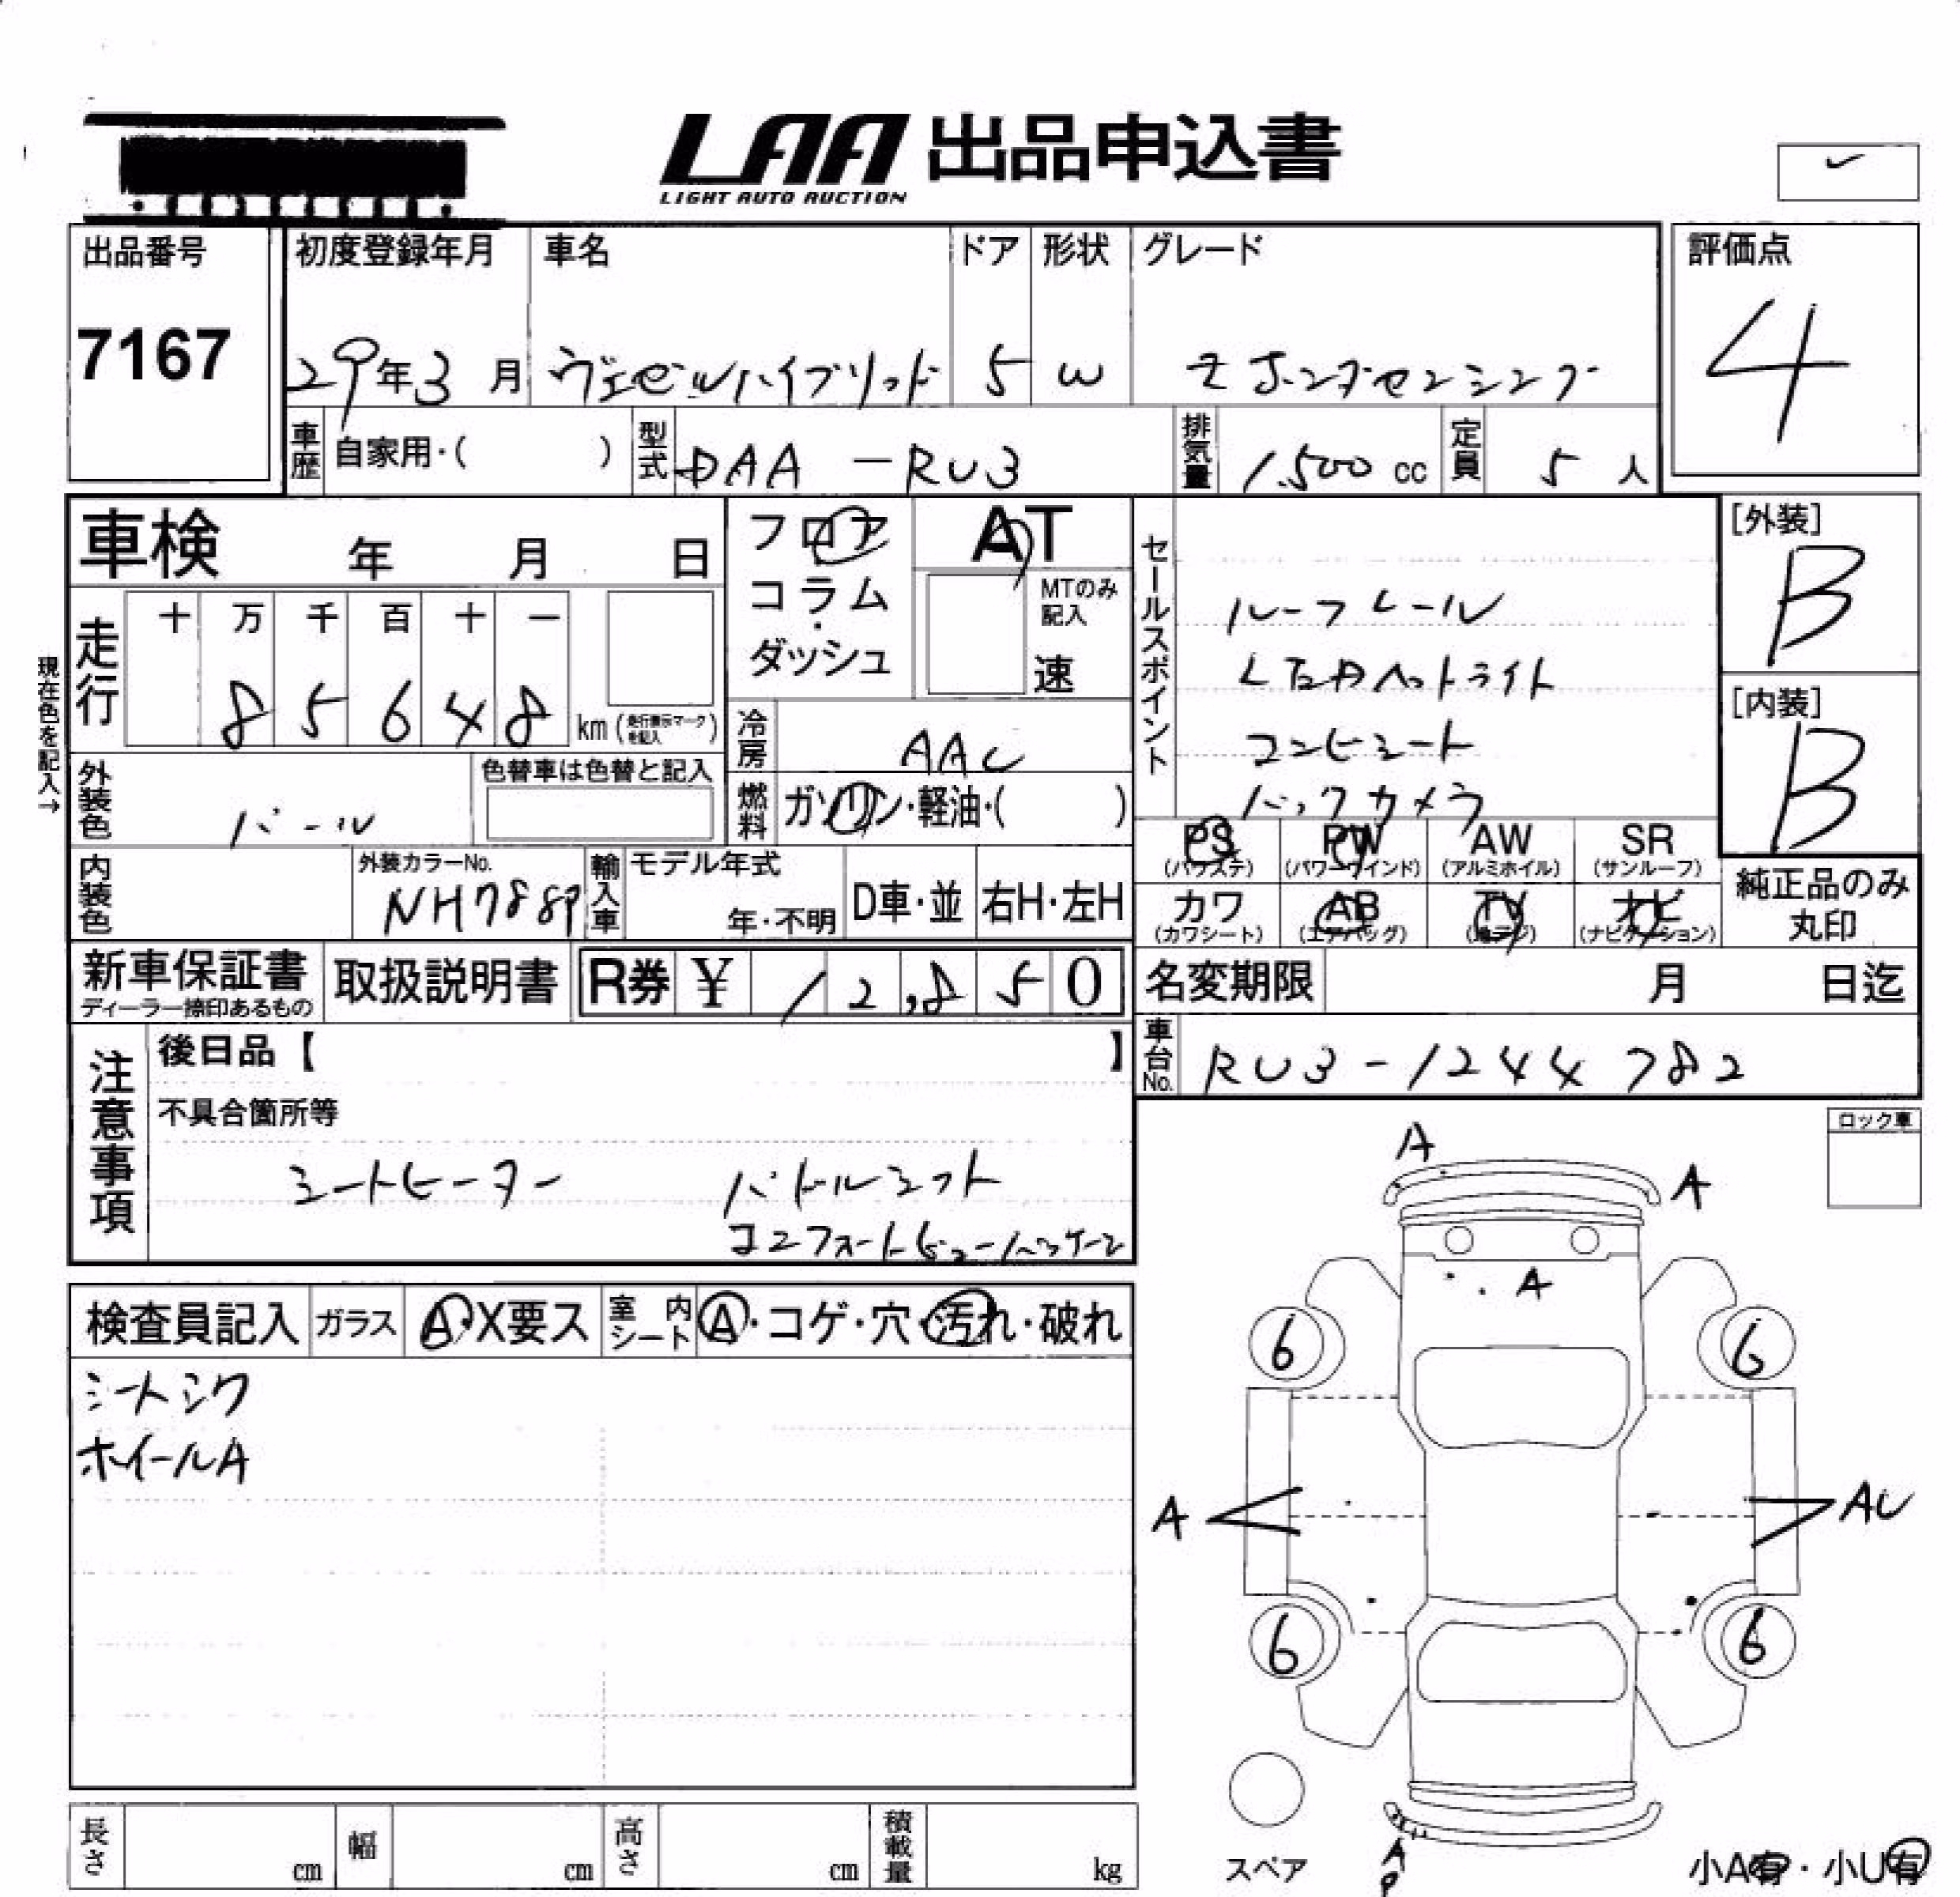 LAA 出品申込書
LIGHT AUTO AUCTION
出品番号 初度登録年月 車名 ドア 形状 グレード 評価点
7167 29年3月 ヴェゼルハイブリッド 5 W Z ホンダセンシング 4
車歴 自家用・( ) 型式 DAA-RU3 排気量 1,500 cc 定員 5 人
車検 年 月 日 フロア コラム・ダッシュ AT
MTのみ記入 速
セールスポイント
ルーフレール
LEDヘットライト
コンビシート
バックカメラ
[外装]
B
[内装]
B
現在色を記入→
走行 十 万 千 百 十 一
8 5 6 4 8 km (走行表示マークを記入)
冷房 AAC
外装色 パール 色替車は色替と記入
燃料 ガソリン・軽油・( )
PS (パワステ) PW (パワーウインド) AW (アルミホイル) SR (サンルーフ)
カワ (カワシート) AB (エアバッグ) TV (地デジ) ナビ (ナビゲーション)
純正品のみ丸印
内装色 外装カラーNo. NH788P 輸入車 モデル年式 年・不明 D車・並 右H・左H
新車保証書 ディーラー捺印あるもの 取扱説明書 R券 ¥ 12,850
名変期限 月 日迄
車台No. RU3-1244782
注意事項
後日品【 】
不具合箇所等
シートヒーター パドルシフト
コンフォートビューパッケージ
ロック車
検査員記入 ガラス A・X要ス 室内シート A・コゲ・穴・汚れ・破れ
シートシワ
ホイールA
A
A
A
6 6
A AU
6 6
スペア
A
P
小A有・小U有
長さ cm 幅 cm 高さ cm 積載量 kg